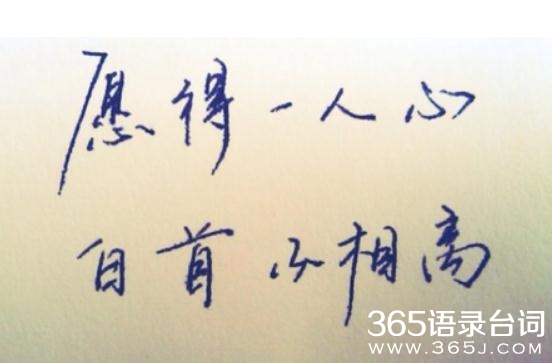 愿得一人心
白首不相离
365语录台词
www.365J.com